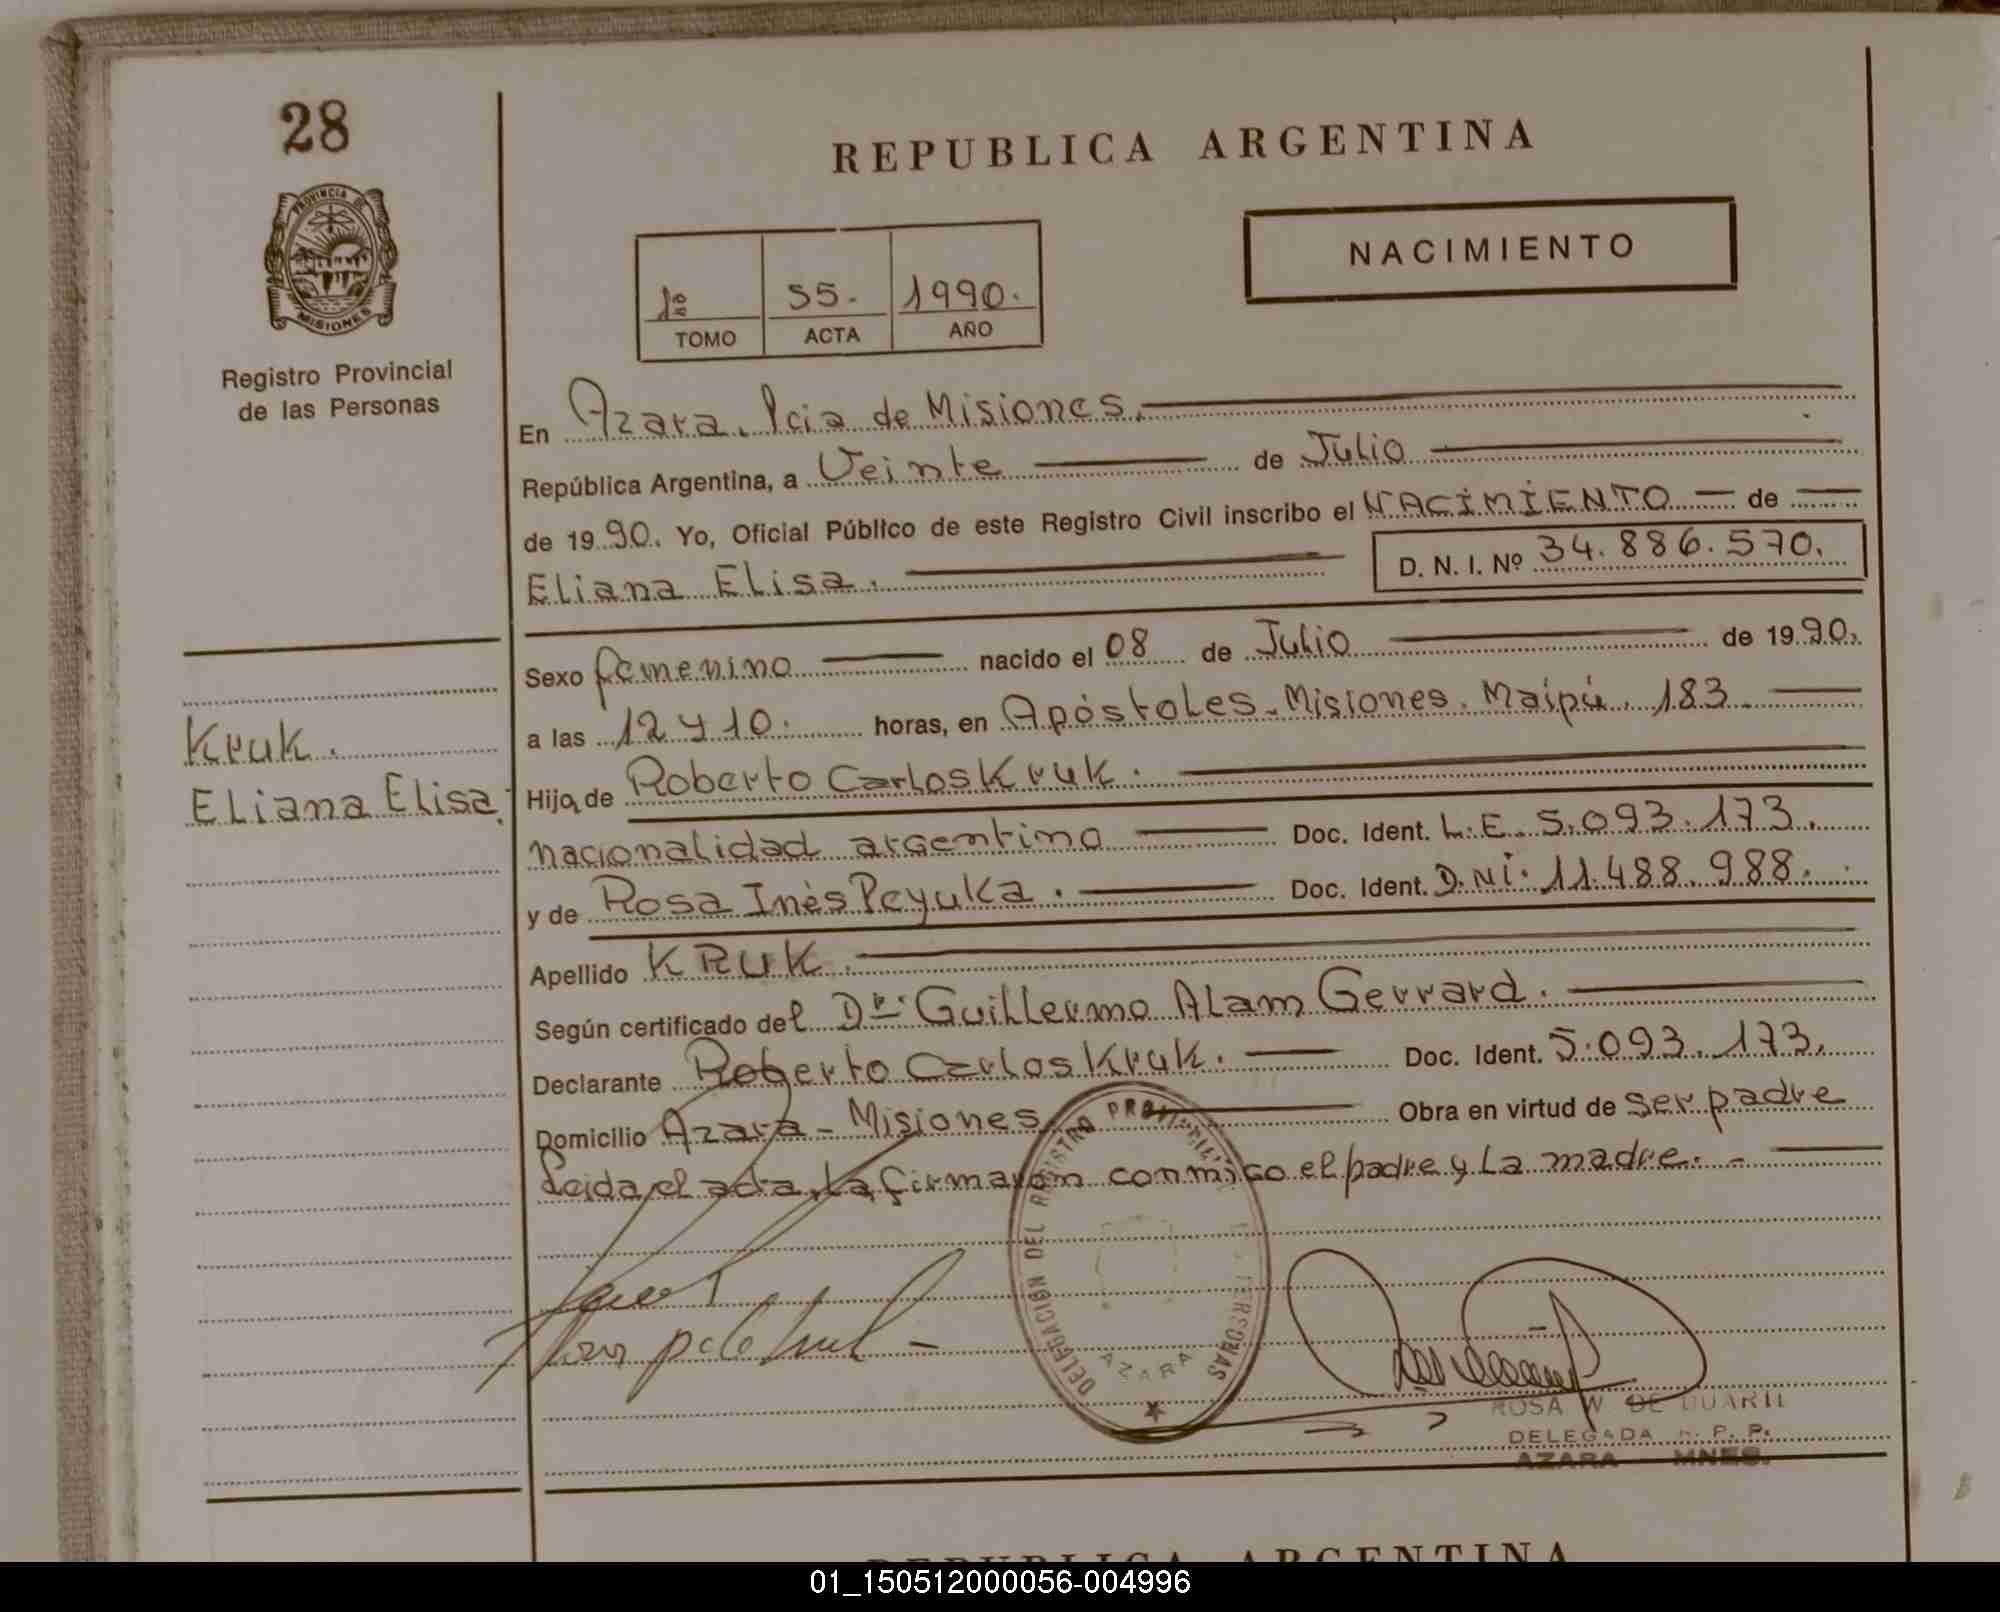 28
REPUBLICA ARGENTINA
PROVINCIA DE
MISIONES
NACIMIENTO
1º 55. 1990.
TOMO ACTA AÑO
Registro Provincial
de las Personas
En Azara. Pcia de Misiones.
República Argentina, a Veinte de Julio
de 1990. Yo, Oficial Público de este Registro Civil inscribo el NACIMIENTO de
Eliana Elisa. D. N. I. Nº 34.886.570.
Sexo femenino nacido el 08 de Julio de 1990.
a las 12 y 10. horas, en Apóstoles. Misiones. Maipú. 183
Kruk.
Eliana Elisa.
Hija de Roberto Carlos Kruk.
nacionalidad argentino Doc. Ident. L.E. 5.093.173.
y de Rosa Inés Peyuka. Doc. Ident. D.Ni. 11.488.988.
Apellido KRUK.
Según certificado del Dr. Guillermo Alam Gerrard.
Declarante Roberto Carlos Kruk. Doc. Ident. 5.093.173.
Domicilio Azara - Misiones Obra en virtud de ser padre
Leida el acta, la firmaron conmigo el padre y la madre.
DELEGACION DEL REGISTRO PROVINCIAL PERSONAS
AZARA
ROSA W DE
DELEGADA R. P. P.
AZARA MNES.
REPUBLICA ARGENTINA
01_150512000056-004996